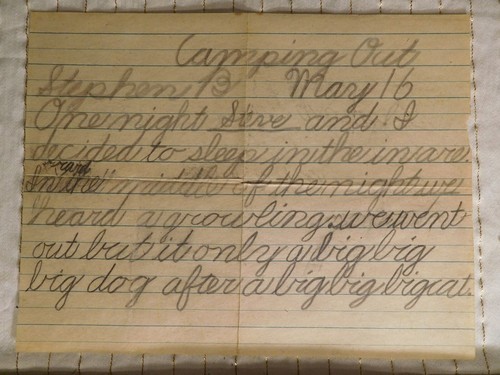 Camping Out
Stephen B May 16
One night Steve and I
decided to sleep in the
In the middle of the night we
heard a growling. we went
out but it only a big big
big dog after a big big big cat.